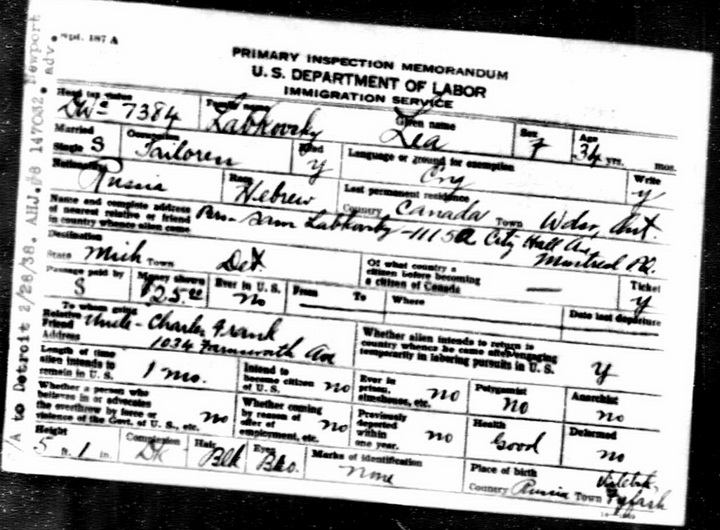 A to Detroit 2/28/38. AHJ. 147032. Newport adv.
PRIMARY INSPECTION MEMORANDUM
U. S. DEPARTMENT OF LABOR
IMMIGRATION SERVICE
Head tax status Family name Given name Sex Age
7384 Labkovsky Lea F 34 yrs. mos.
Married Single S Occupation Tailoress Read y Language or ground for exemption Eng Write y
Nationality Russia Race Hebrew Last permanent residence Country Canada Town Wdsr, Ont.
Name and complete address of nearest relative or friend in country whence alien came Sam Labkovsky - 1115A City Hall Av Montreal P.Q.
Destination
State Mich Town Det Of what country a citizen before becoming a citizen of Canada — Ticket y
Passage paid by S Money shown $25 Ever in U. S. no From To Where Date last departure
To whom going
Relative Friend Uncle - Charles Frank
Address 1034 Farnsworth Av
Whether alien intends to return to country whence he came after engaging temporarily in laboring pursuits in U. S. y
Length of time alien intends to remain in U. S. 1 mo. Intend to become citizen of U. S. no Ever in prison, almshouse, etc. no Polygamist no Anarchist no
Whether a person who believes in or advocates the overthrow by force or violence of the Govt. of U. S., etc. no Whether coming by reason of offer of employment, etc. no Previously deported within one year. no Health Good Deformed no
Height 5 ft. 1 in. Complexion Dk Hair Blk Eyes Bro. Marks of identification none Place of birth Country Russia Town